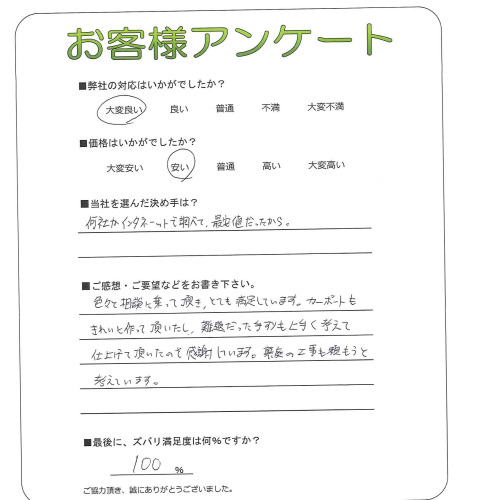 お客様アンケート
■弊社の対応はいかがでしたか？
大変良い 良い 普通 不満 大変不満
■価格はいかがでしたか？
大変安い 安い 普通 高い 大変高い
■当社を選んだ決め手は？
何社かインターネットで調べて、最安値だったから。
■ご感想・ご要望などをお書き下さい。
色々と相談に乗って頂き、とても満足しています。カーポートも
きれいに作って頂いたし、難題だった手すりも上手く考えて
仕上げて頂いたので感謝しています。裏庭の工事も頼もうと
考えています。
■最後に、ズバリ満足度は何%ですか？
100 %
ご協力頂き、誠にありがとうございました。